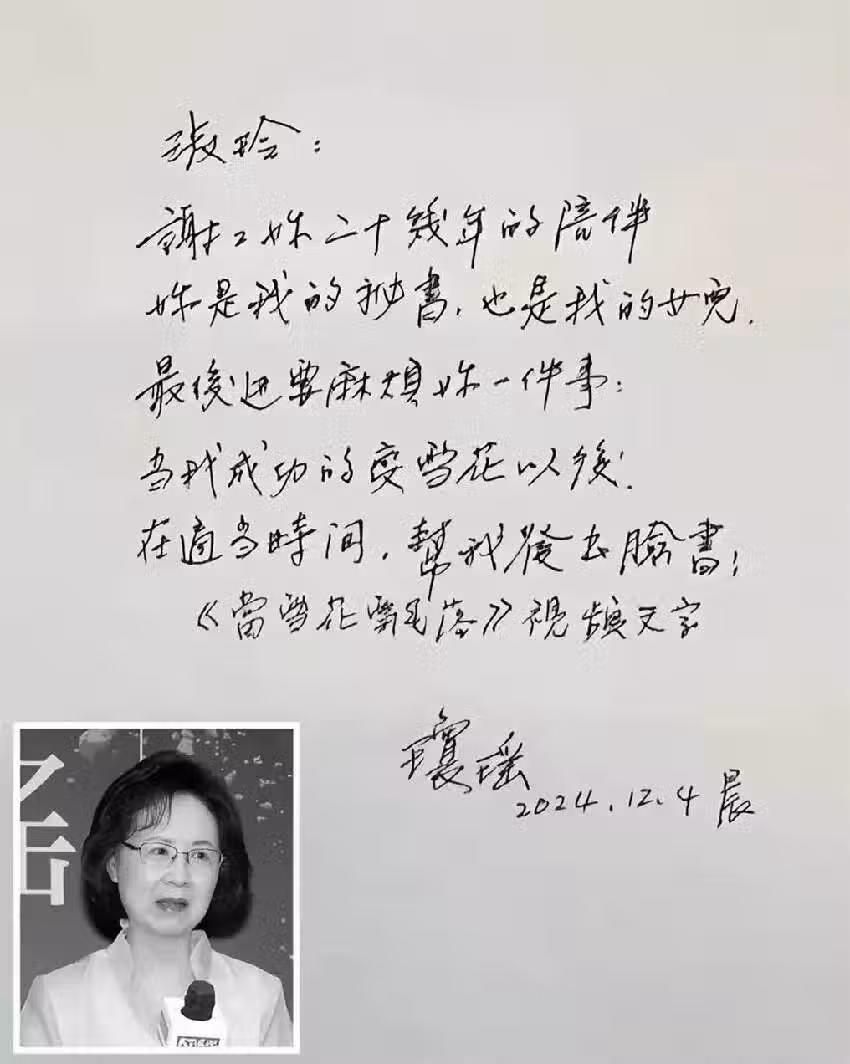 淑玲：
謝謝妳二十幾年的陪伴
妳是我的秘書，也是我的女兒，
最後还要麻煩妳一件事：
当我成功的变雪花以後，
在適当時间，幫我發出臉書：
《當雪花飄落》視頻文字
瓊瑤
2024.12.4 晨